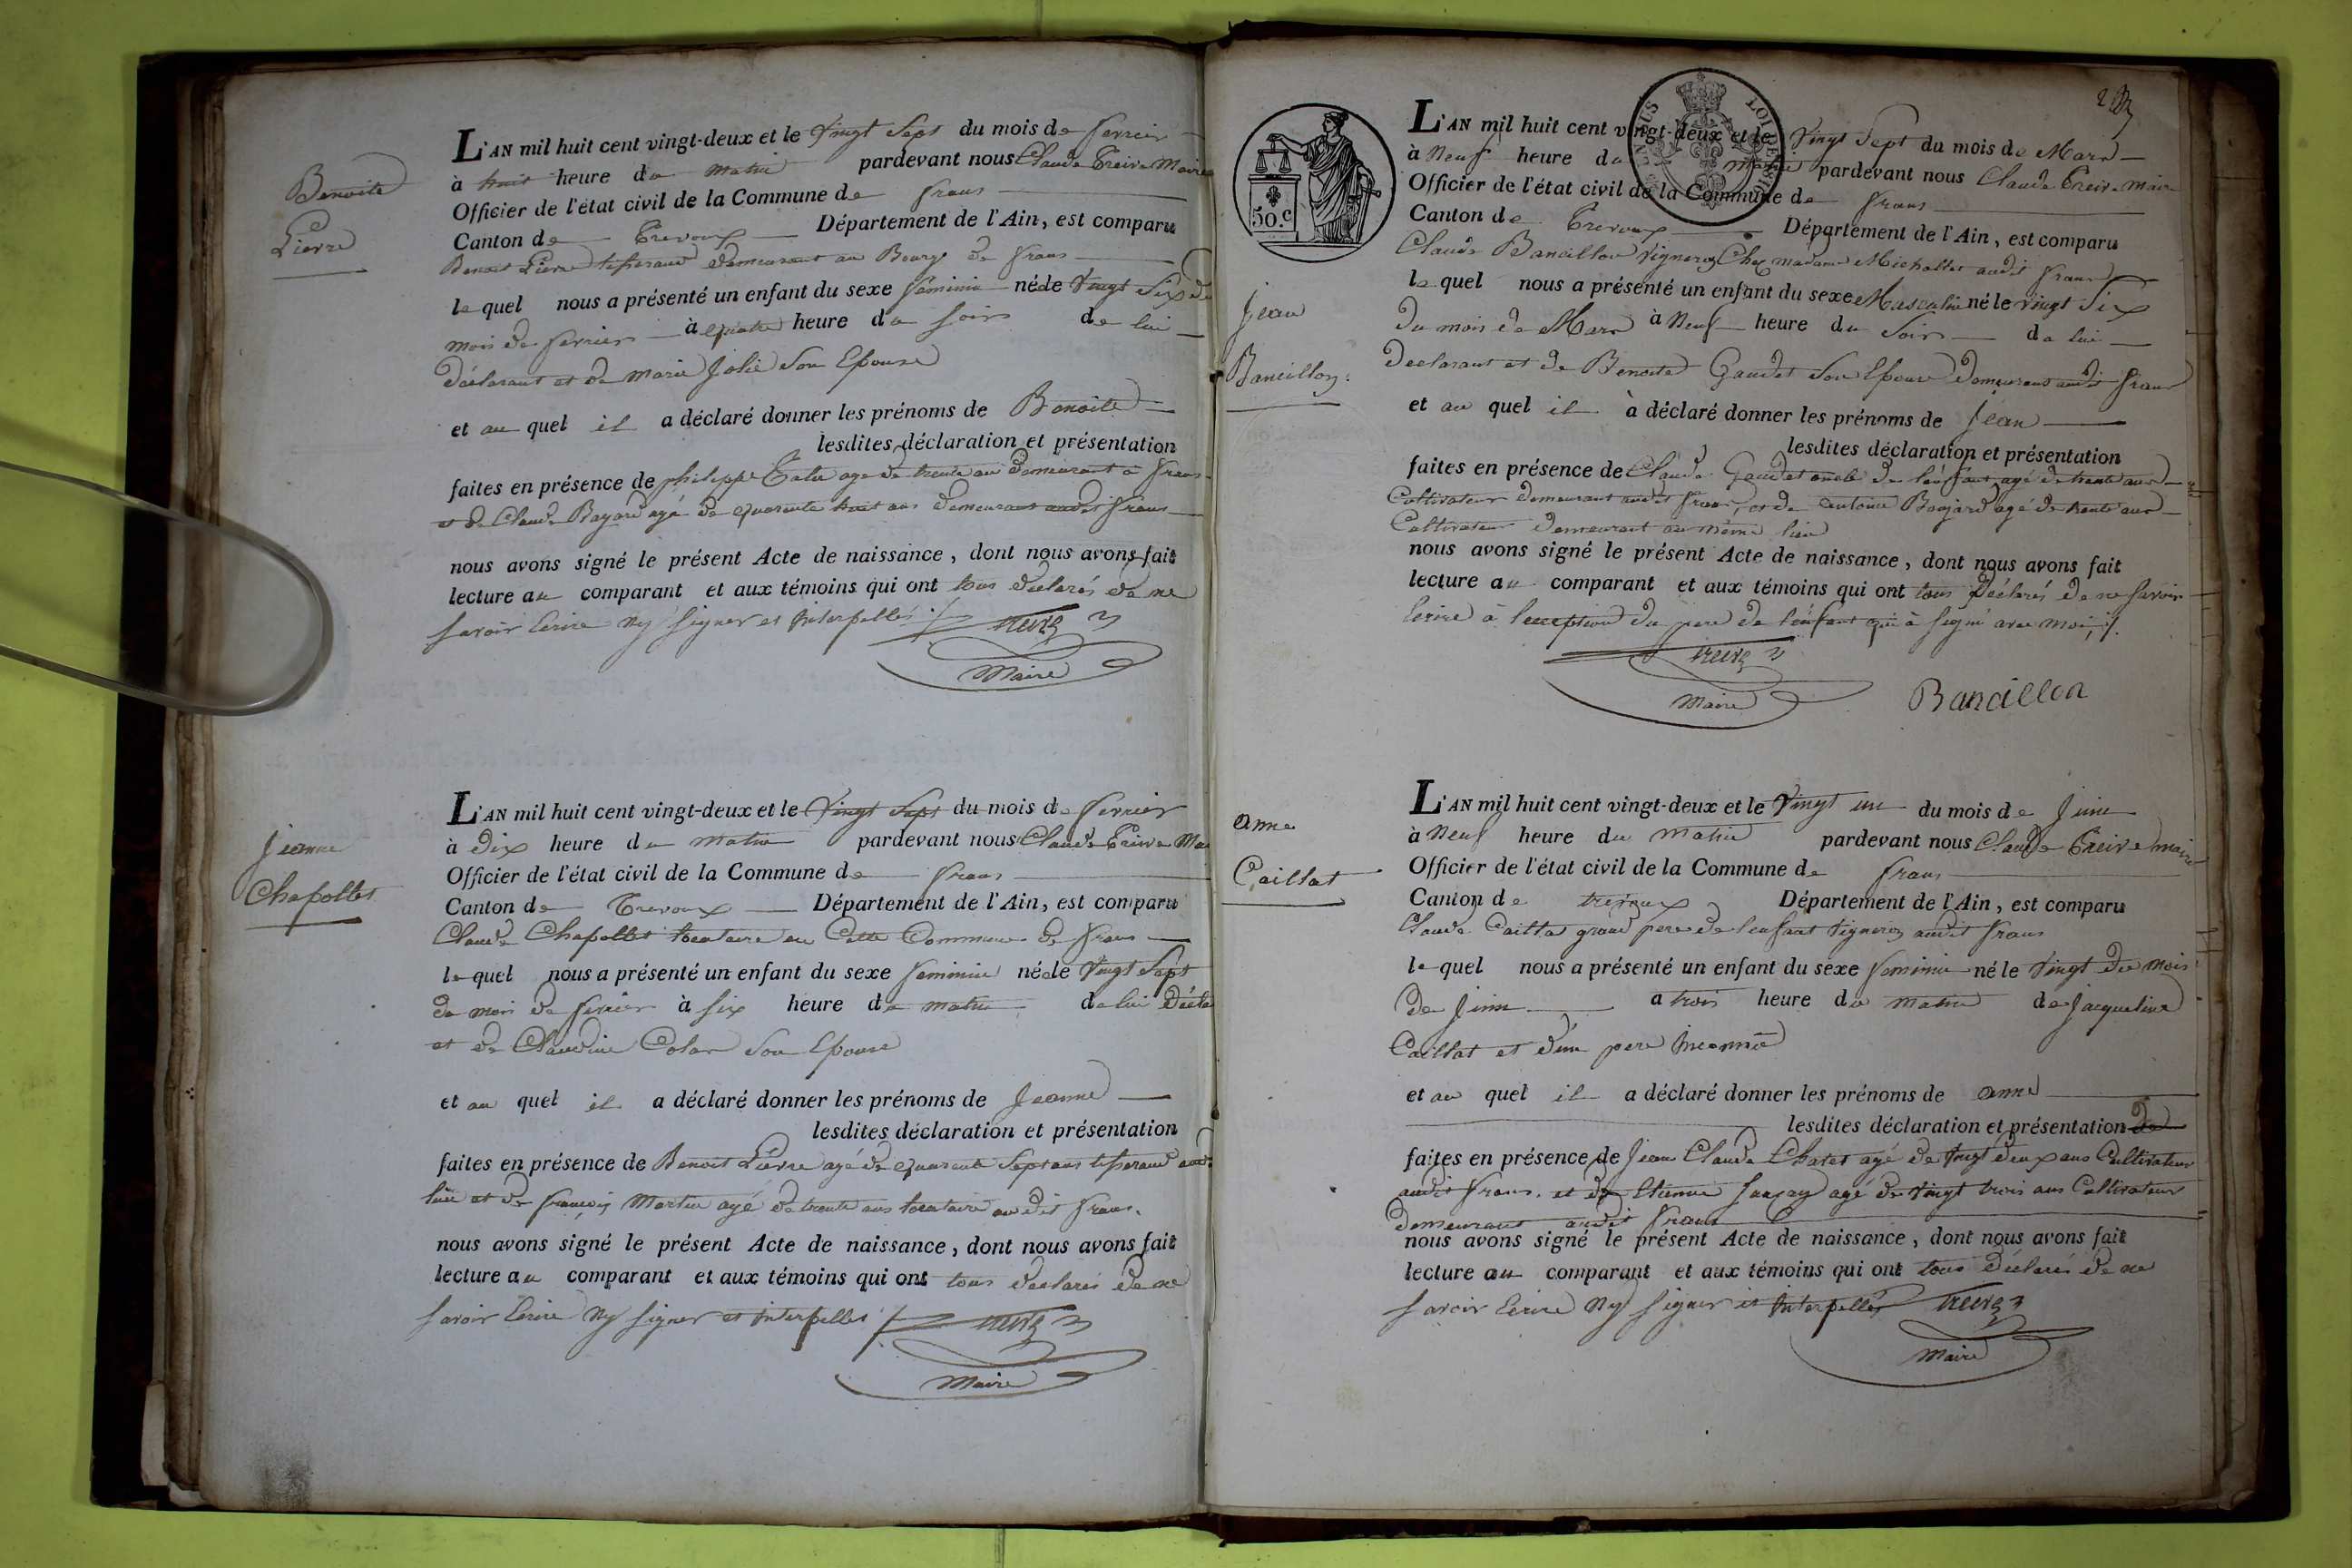 Benoite
Pierre
L'AN mil huit cent vingt-deux et le Vingt Sept du mois de fevrier
à huit heure du matin pardevant nous Claude Treive Maire
Officier de l'état civil de la Commune de frans
Canton de Trevoux Département de l'Ain, est comparu
Benoit Pierre tisserand demeurant au Bourg de frans
le quel nous a présenté un enfant du sexe féminin née le Vingt Six du
mois de fevrier à quatre heure du soir de lui
déclarant et de Marie Jolie son Epouse
et au quel il a déclaré donner les prénoms de Benoite
lesdites déclaration et présentation
faites en présence de philippe agé de trente ans demeurant à frans
et de Claude Bayard agé de quarente huit ans demeurant audit frans
nous avons signé le présent Acte de naissance, dont nous avons fait
lecture au comparant et aux témoins qui ont tous déclarés de ne
savoir Ecrire Ny signer et Interpellés
treive
Maire
Jeanne
Chapollet
L'AN mil huit cent vingt-deux et le Vingt Sept du mois de fevrier
à dix heure du matin pardevant nous Claude Treive Ma
Officier de l'état civil de la Commune de frans
Canton de Trevoux Département de l'Ain, est comparu
Claude Chapollet locataire en Cette Commune de frans
le quel nous a présenté un enfant du sexe feminin née le Vingt Sept
du mois de fevrier à six heure du matin de lui Décla
et de Claudine Colas son Epouse
et au quel il a déclaré donner les prénoms de Jeanne
lesdites déclaration et présentation
faites en présence de Benoit Pierre agé de quarente Sept ans tisserand
lieu et de françois Martin agé de trente ans locataire au dit frans.
nous avons signé le présent Acte de naissance, dont nous avons fait
lecture au comparant et aux témoins qui ont tous declarés de ne
savoir Ecrire Ny signer et Interpellés
treive
Maire
50.c
Jean
Bancillon
L'AN mil huit cent vingt-deux et le Vingt Sept du mois de Mars
à Neuf heure du matin pardevant nous Claude Treive Maire
Officier de l'état civil de la Commune de frans
Canton de Trevoux Département de l'Ain, est comparu
Claude Bancillon Vigneron Chez madame Michollet audit frans
le quel nous a présenté un enfant du sexe Masculin né le vingt Six
du mois de Mars à Neuf heure du Soir de lui
Declarant et de Benoite Gaudet Son Epouse demeurant audit frans
et au quel il à déclaré donner les prénoms de Jean
lesdites déclaration et présentation
faites en présence de Claude Gaudet oncle de l'enfant agé de trente ans
Cultivateur demeurant audit frans, et de antoine Boujard agé de trente ans
Cultivateur demeurant au même lieu
nous avons signé le présent Acte de naissance, dont nous avons fait
lecture au comparant et aux témoins qui ont tous Déclarés de ne savoir
Ecrire à l'exception du pere de l'enfant qui à signé avec moi
treive
Maire
Bancillon
anne
Caillat
L'AN mil huit cent vingt-deux et le Vingt un du mois de Juin
à Neuf heure du matin pardevant nous Claude Treive maire
Officier de l'état civil de la Commune de frans
Canton de trévoux Département de l'Ain, est comparu
Claude Caillat grand pere de l'enfant Vigneron audit frans
le quel nous a présenté un enfant du sexe feminin né le Vingt du mois
de Juin a trois heure du matin de Jacqueline
Caillat et d'un pere Inconnu
et au quel il a déclaré donner les prénoms de anne
lesdites déclaration et présentation
faites en présence de Jean Claude Chatet agé de Vingt deux ans Cultivateur
audit frans. et de Etienne agé de Vingt trois ans Cultivateur
demeurant audit frans
nous avons signé le présent Acte de naissance, dont nous avons fait
lecture au comparant et aux témoins qui ont tous déclarés de ne
savoir Ecrire Ny signer et Interpellés treive
Maire